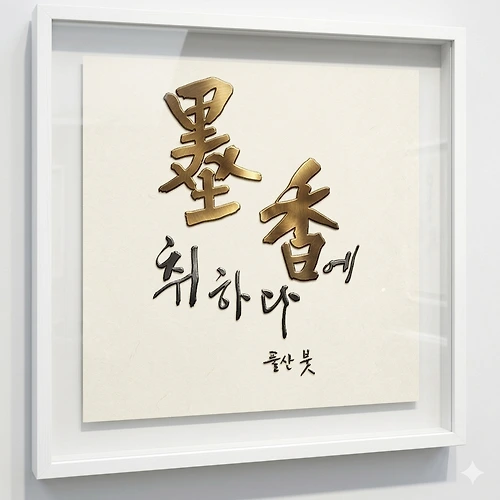 墨香에
취하다
풀산 붓